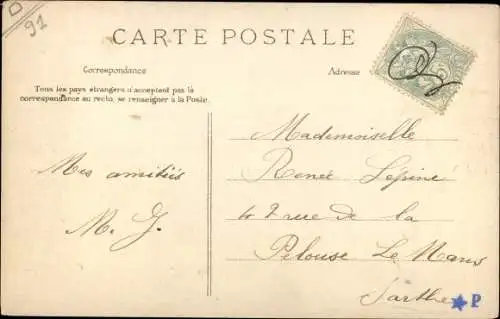 D
91
CARTE POSTALE
Correspondance
Adresse
Tous les pays étrangers n'acceptent pas la
correspondance au recto, se renseigner à la Poste.
Mes amitiés
M. J.
Mademoiselle
Renée Lepiné
2 rue de la
Pelouse Le Mans
Sarthe
P